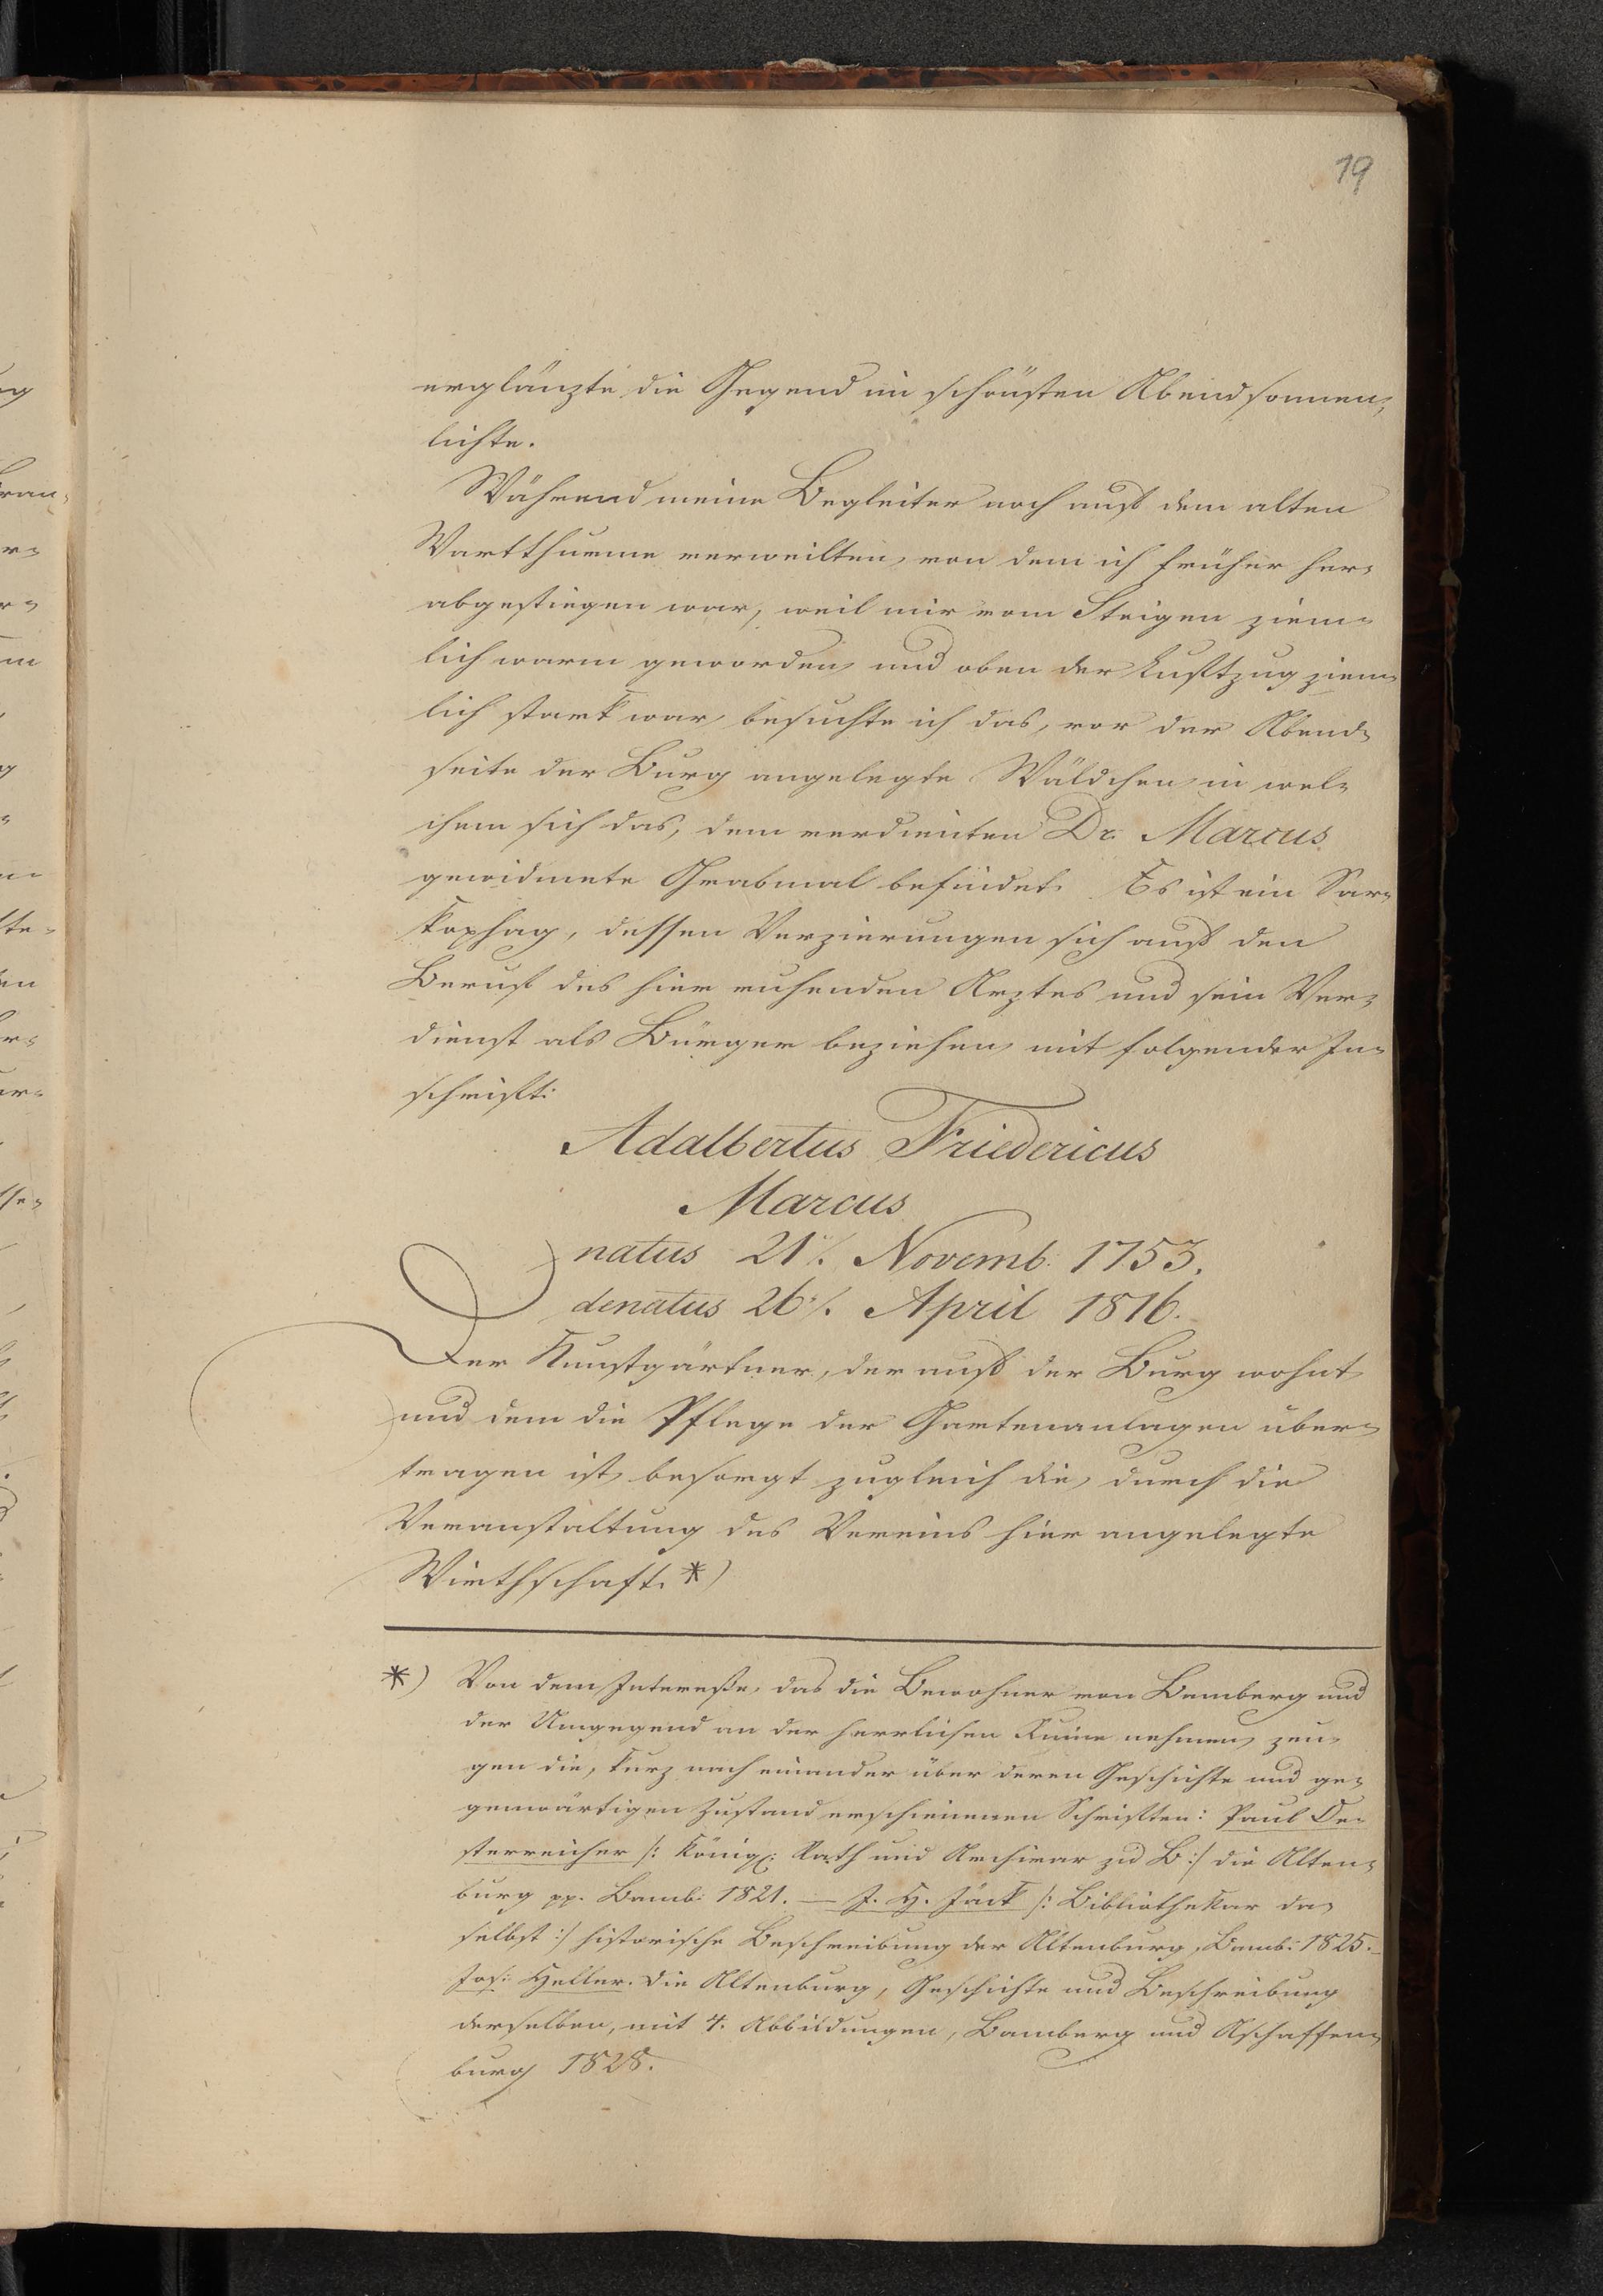 19
erglänzte die Gegend im schönsten Abendsonnen-
lichte.
Während meine Begleiter noch auf dem alten
Wartthurme verweilten, von dem ich früher her-
abgestiegen war, weil mir vom Steigen ziem-
lich warm geworden, und oben der Luftzug ziem-
lich stark war, besuchte ich das, vor der Abend-
seite der Burg angelegte Wäldchen, in wel-
chem sich das, dem verdienten Dr. Marcus
gewidmete Grabmal befindet. Es ist ein Sar-
kophag, dessen Verzierungen sich auf den
Beruf des hier ruhenden Arztes und sein Ver-
dienst als Bürger beziehen, mit folgender In-
schrift:
Adalbertus Friedericus
Marcus
natus 21/. Novemb: 1753.
denatus 26/. April 1816.
Der Kunstgärtner, der auf der Burg wohnt
und dem die Pflege der Gartenanlagen über-
tragen ist, besorgt zugleich die, durch die
Veranstaltung des Vereins hier angelegte
Wirthschaft. *)
*) Von dem Interesse, das die Bewohner von Bamberg und
der Umgegend an der herrlichen Ruine nehmen, zeu-
gen die, kurz nach einander über deren Geschichte und ge-
genwärtigen Zustand erschienenen Schriften: Paul Oe-
sterreicher /: Königl: Rath und Archivar zu B :/ die Alten-
burg pp. Bamb: 1821. — J. H. Jäck /: Bibliothekar da-
selbst :/ historische Beschreibung der Altenburg, Bamb: 1825. –
Jos: Heller. die Altenburg, Geschichte und Beschreibung
derselben, mit 4. Abbildungen, Bamberg und Aschaffen-
burg 1828.